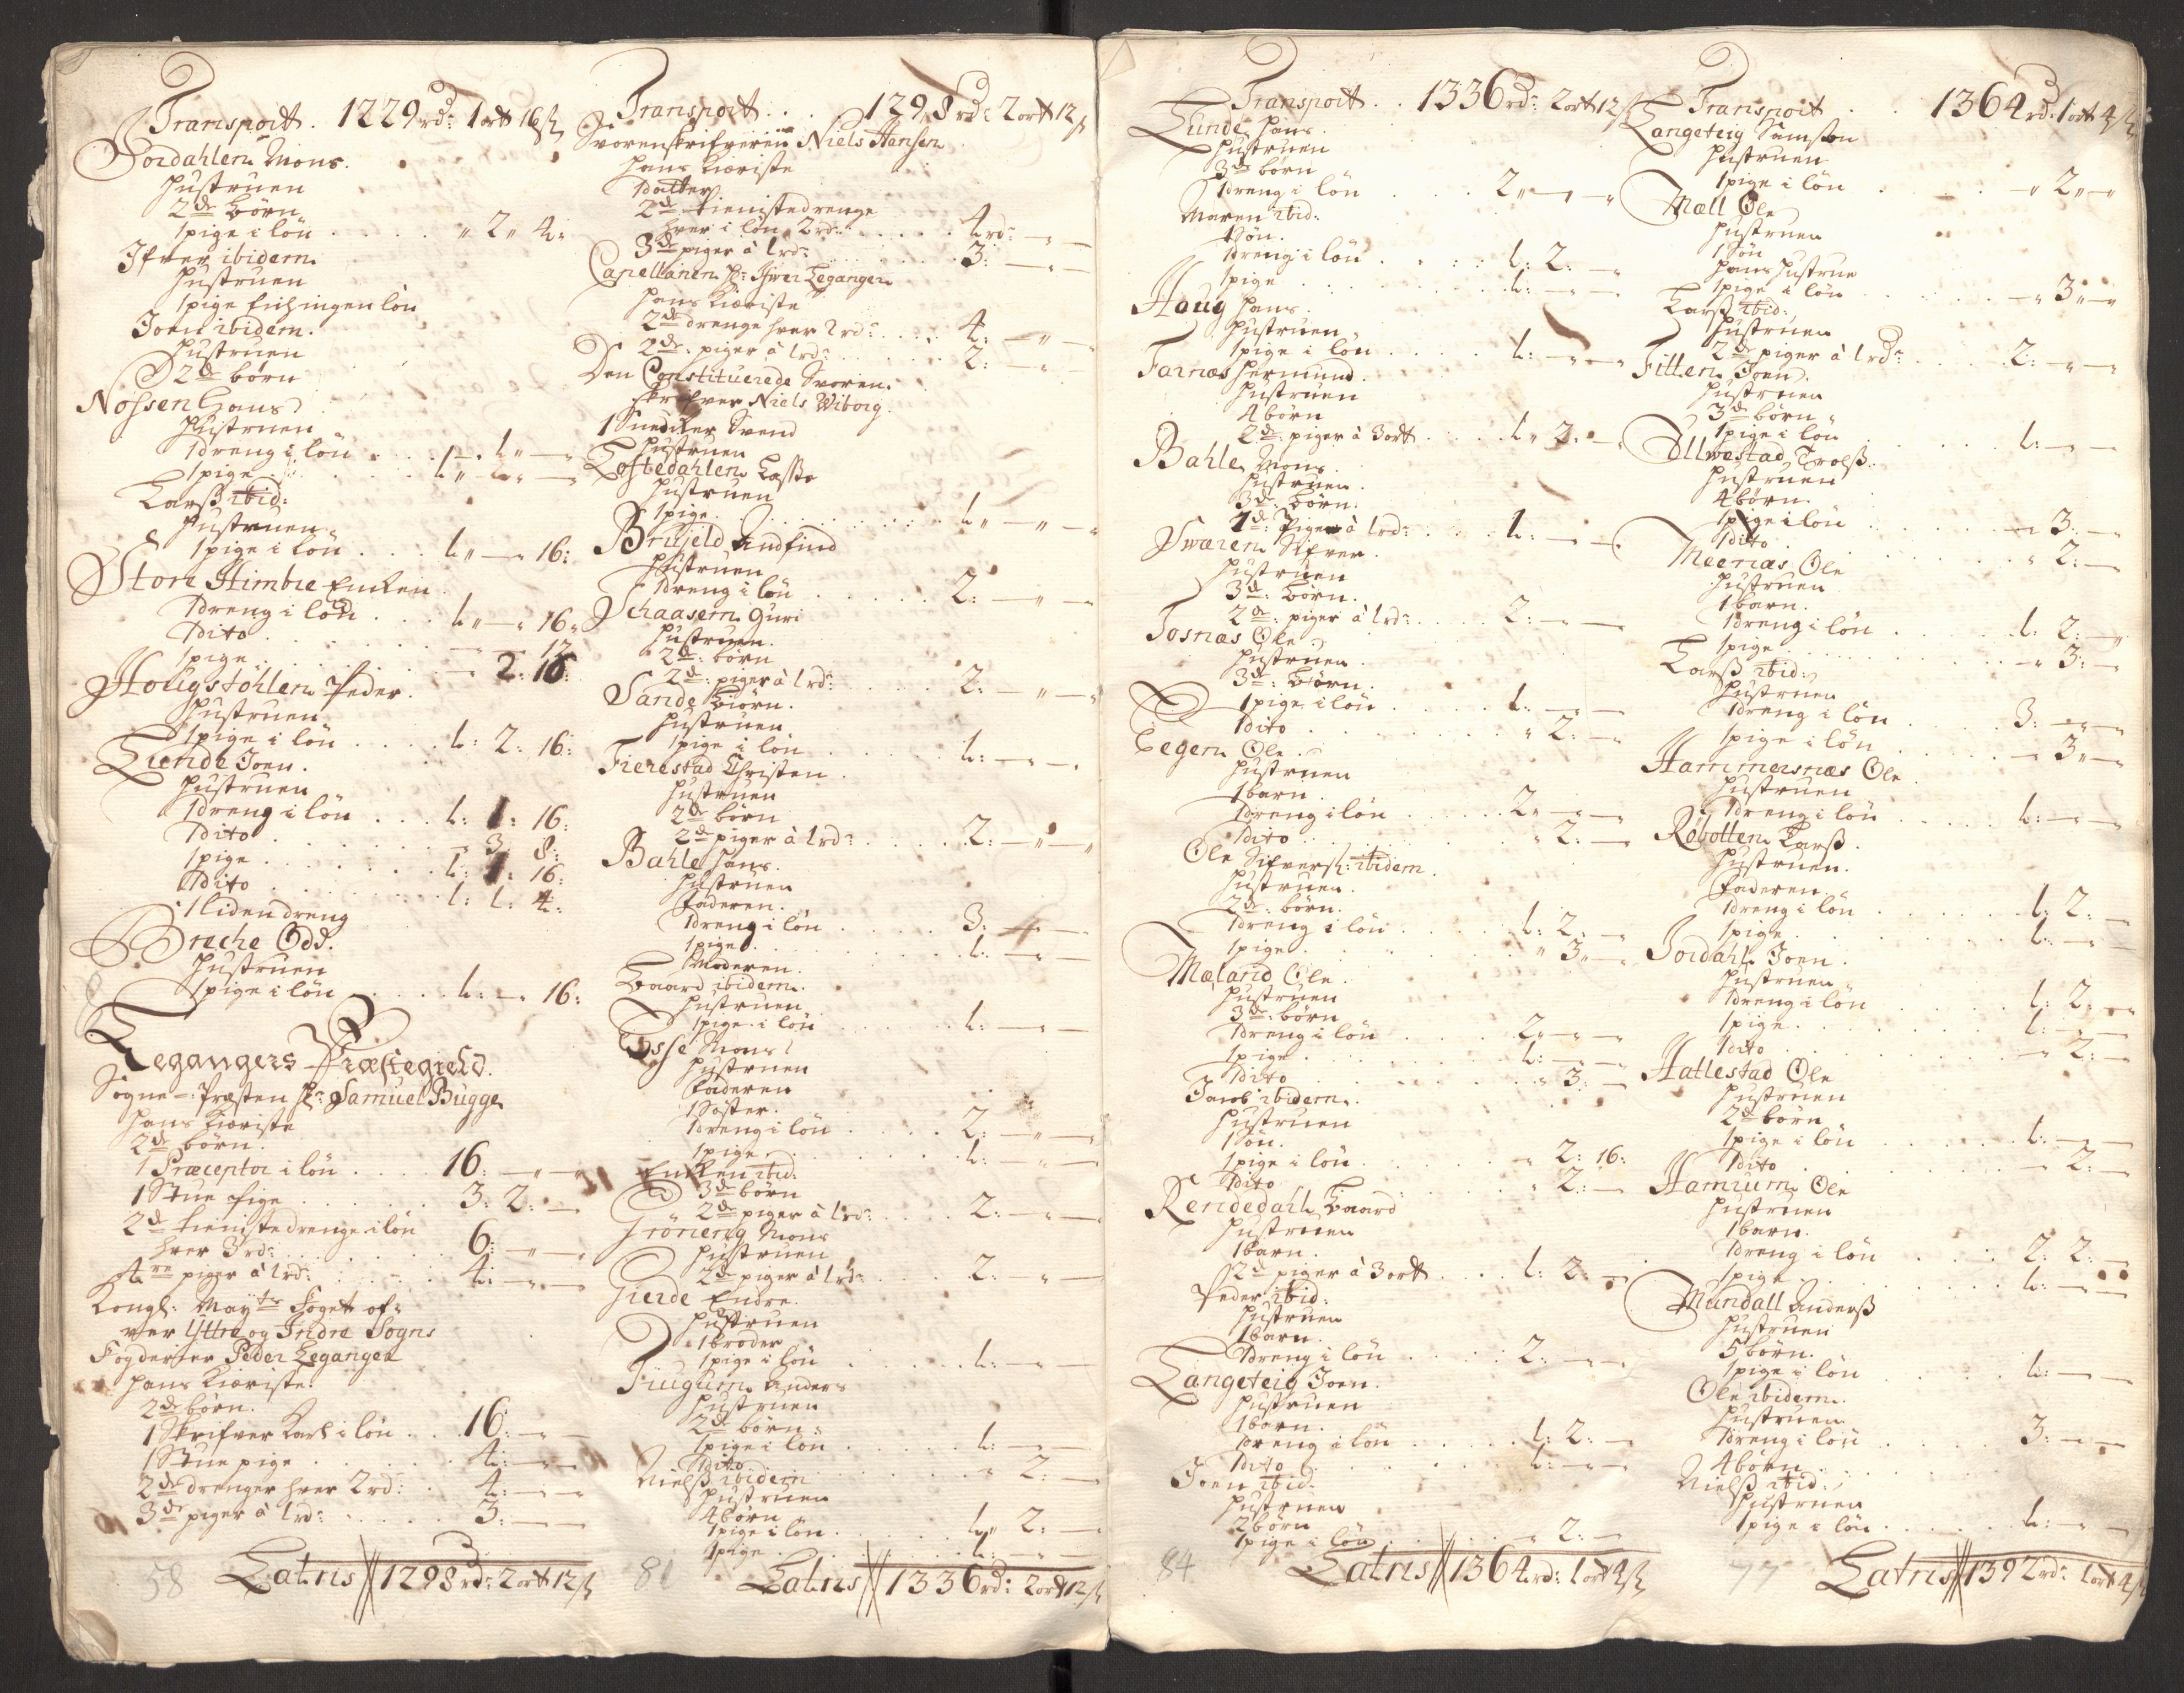 Transport. 1229 rd: 1 ort 16 ß
Sordahlen Mons.
Hustruen
2de børn
1 pige i lön . . . . . " 2 " 4:
Ifver ibidem.
Hustruen
1 pige Enchingen lön
Joen ibidem.
Hustruen
2de børn
Nossen Hans
Hustruen
1 dreng i lön . . . 1 " — "
1 pige . . . 1 " — "
Larß ibid:
Hustruen
1 pige i lön . . . 1 " — " 16:
Store Himbre Enken
1 dreng i lön . . 1 " — " 16 "
1 dito . . . — — 12
1 pige . . . — 2: 16:
Hougstohlen Peder.
Hustruen
1 pige i lön . . . 1: 2: 16:
Lunde Joen.
Hustruen
1 dreng i lön . . . 1: 1: 16:
1 dito . . . — 3 8:
1 pige . . . 1: 1: 16:
1 dito . . . 1: 1: 4:
1 liden dreng
Breche Odd.
Hustruen
1 pige i lön . . . 1: — 16:
Legangers Præstegield.
Sogne-Præsten Hr: Samuel Bugge
Hans Kiæriste
2de børn.
1 Præceptor i lön . . . 16: — " —
1 Stue pige . . . 3: 2: —
2de tienistedrenge i lön
hver 3 rd: . . . 6: — " —
4re piger à 1 rd: . . . 4: — " —
Kongl: Mayts Foget of-
ver Yttre og Indre Sogns
Fogderier Peder Leganger
Hans Kiæriste.
2de børn.
1 Skrifver Karl i lön . . 16: — " —
1 Stue pige . . . 4: — " —
2de drenger hver 2 rd: . . 4: — " —
3de piger à 1 rd: . . . 3: — —
58 Latris 1298 rd: 2 ort 12 ß
Transport . . 1298 rd: 2 ort 12 ß
Svorenskrifveren Niels Hansen
Hans Kiæriste
1 datter
2de tienistedrenge
hver i lön 2 rd: . . . 4 rd: — —
3de piger à 1 rd: . . . 3: — " —
Capellanen Hr: Ifver Leganger
Hans Kiæriste
2de drenge hver 2 rd: . . . 4: — " —
2de piger à 1 rd: . . . 2: — " —
Den Constituerede Svoren-
skrifver Niels Wiborg
1 Snedker Svend
Hustruen
Löftedahlen Lasse
Hustruen
1 pige . . . 1 " — " —
Brujeld Andfind
Hustruen
1 dreng i lön . . . 2: — " —
Schaasem Guri
Hustruen.
2de børn
2de: piger à 1 rd: . . . 2: — " —
Sande Biørn.
Hustruen
1 pige i lön . . . 1: — " —
Fierestad Christen
Hustruen
2de børn
2de piger à 1 rd: . . . 2: — " —
Bahle Hans.
Hustruen
Faderen.
1 dreng i lön . . . 3: — " —
1 pige . . . 1: — " —
Moderen.
Baard ibidem.
Hustruen
1 pige i lön . . . 1: — " —
Esse Mons
Hustruen
Faderen
1 Söster.
1 dreng i lön . . . 2: — " —
1 pige . . . 1: — " —
Enken ibid:
3de børn
2de piger à 1 rd: . . . 2: — " —
Gröneng Mons
Hustruen
2de piger à 1 rd: . . . 2: — " —
Gierde Endre.
Hustruen
1 broder
1 pige i lön . . . 1: — " —
Fiugum Anders
Hustruen
2de børn:
1 pige i lön . . . 1: — " —
1 dito . . . " 2: —
Nielß ibidem
Hustruen
4 børn
1 pige i lön . . . 1 " 2: —
1 pige . . . 1: — " —
81 Latris 1336 rd: 2 ort 12 ß
Transport . . 1336 rd: 2 ort 12 ß
Lunde Hans.
Hustruen
3de børn
1 dreng i lön . . . 2 " — "
Maren ibid:
1 søn.
1 dreng i lön . . . 1: 2: —
1 pige . . . 1: — " —
Houg Hans.
Hustruen
1 pige i lön . . . 1: — " —
Farnæs Hermund.
Hustruen
4 børn
2de: piger à 3 ort . . . 1 " 2: —
Bahle Mons.
Hustruen.
3de børn.
1de: Piger à 1 rd: . . . 1: — —
Swæren Sifver.
Hustruen
3de: børn.
2de: piger à 1 rd: . . . 2: — " —
Tosnæs Ole.
Hustruen.
3de: børn.
1 pige i lön . . . 1: — " —
1 dito . . . " 2: —
Eegen Ole.
Hustruen
1 barn.
1 dreng i lön . . . 2 " — " —
1 dito . . . " 2: —
Ole Sifverß: ibidem.
Hustruen.
2de: børn.
1 dreng i lön . . . 1: 2: —
1 pige . . . " 3 " —
Mæland Ole.
Hustruen
3de: børn
1 dreng i lön . . . 2 " — " —
1 pige . . . 1: — " —
1 dito . . . " 3: —
Jacob ibidem.
Hustruen
1 søn.
1 pige i lön . . . " 2: 16:
1 dito . . . " 2: —
Rendedahl Baard
Hustruen
1 barn.
2de piger à 3 ort . . . 1: 2: —
Peder ibid:
Hustruen
1 barn.
1 dreng i lön . . . 2: — " —
Langeteig Joen.
Hustruen
1 barn.
1 dreng i lön . . . 1: 2: —
1 dito . . . 1: — " —
Joen ibid:
Hustruen
2 børn
1 pige i lön . . . " 2: —
84 Latris 1364 rd: 1 ort 4 ß
Transport . . 1364 rd: 1 ort 4 ß
Langeteig Samson
Hustruen
1 pige i lön . . . — " 2 " — "
Mæll Ole
Hustruen
1 Søn
Hans Hustrue
1 pige i lön . . . — " 3 " — "
Larß ibid:
Hustruen
2de piger à 1 rd: . . . 2: — " —
Fitten Joen.
Hustruen
3de børn.
1 pige i lön . . . 1: — " —
Ullvestad Troelß.
Hustruen
4 børn.
1 pige i lön . . . — 3: —
1 dito . . . " 2: —
Meenæs Ole
Hustruen
1 barn.
1 dreng i lön . . . 1: 2: —
1 pige . . . — " 3: —
Larß ibid:
Hustruen
1 dreng i lön . . . 3: — " —
1 pige i lön . . . — 3 " —
Hammersnæs Ole.
Hustruen
1 dreng i lön . . . 1: — " —
Røbotten Larß.
Hustruen.
Faderen.
1 dreng i lön . . . 1: 2: —
1 pige . . . 1: — " —
Sordahl Joen.
Hustruen
1 dreng i lön . . . 1: 2: —
1 pige . . . 1: — " —
1 dito . . . — " 2: —
Hallestad Ole
Hustruen
2de børn
1 pige i lön . . . 1: — " —
1 dito . . . — " 2: —
Hamrum Ole
Hustruen
1 barn.
1 dreng i lön . . . 2: 2: —
1 pige . . . 1: — " —
Mundall Anderß
Hustruen
5 børn.
1 pige i lön . . . 1: — " —
Ole ibidem.
Hustruen
1 dreng i lön . . . 3: — " —
4 børn
Nielß ibid:
Hustruen
1 pige i lön . . . 1: — " —
77 Latris 1392 rd: 1 ort 4 ß